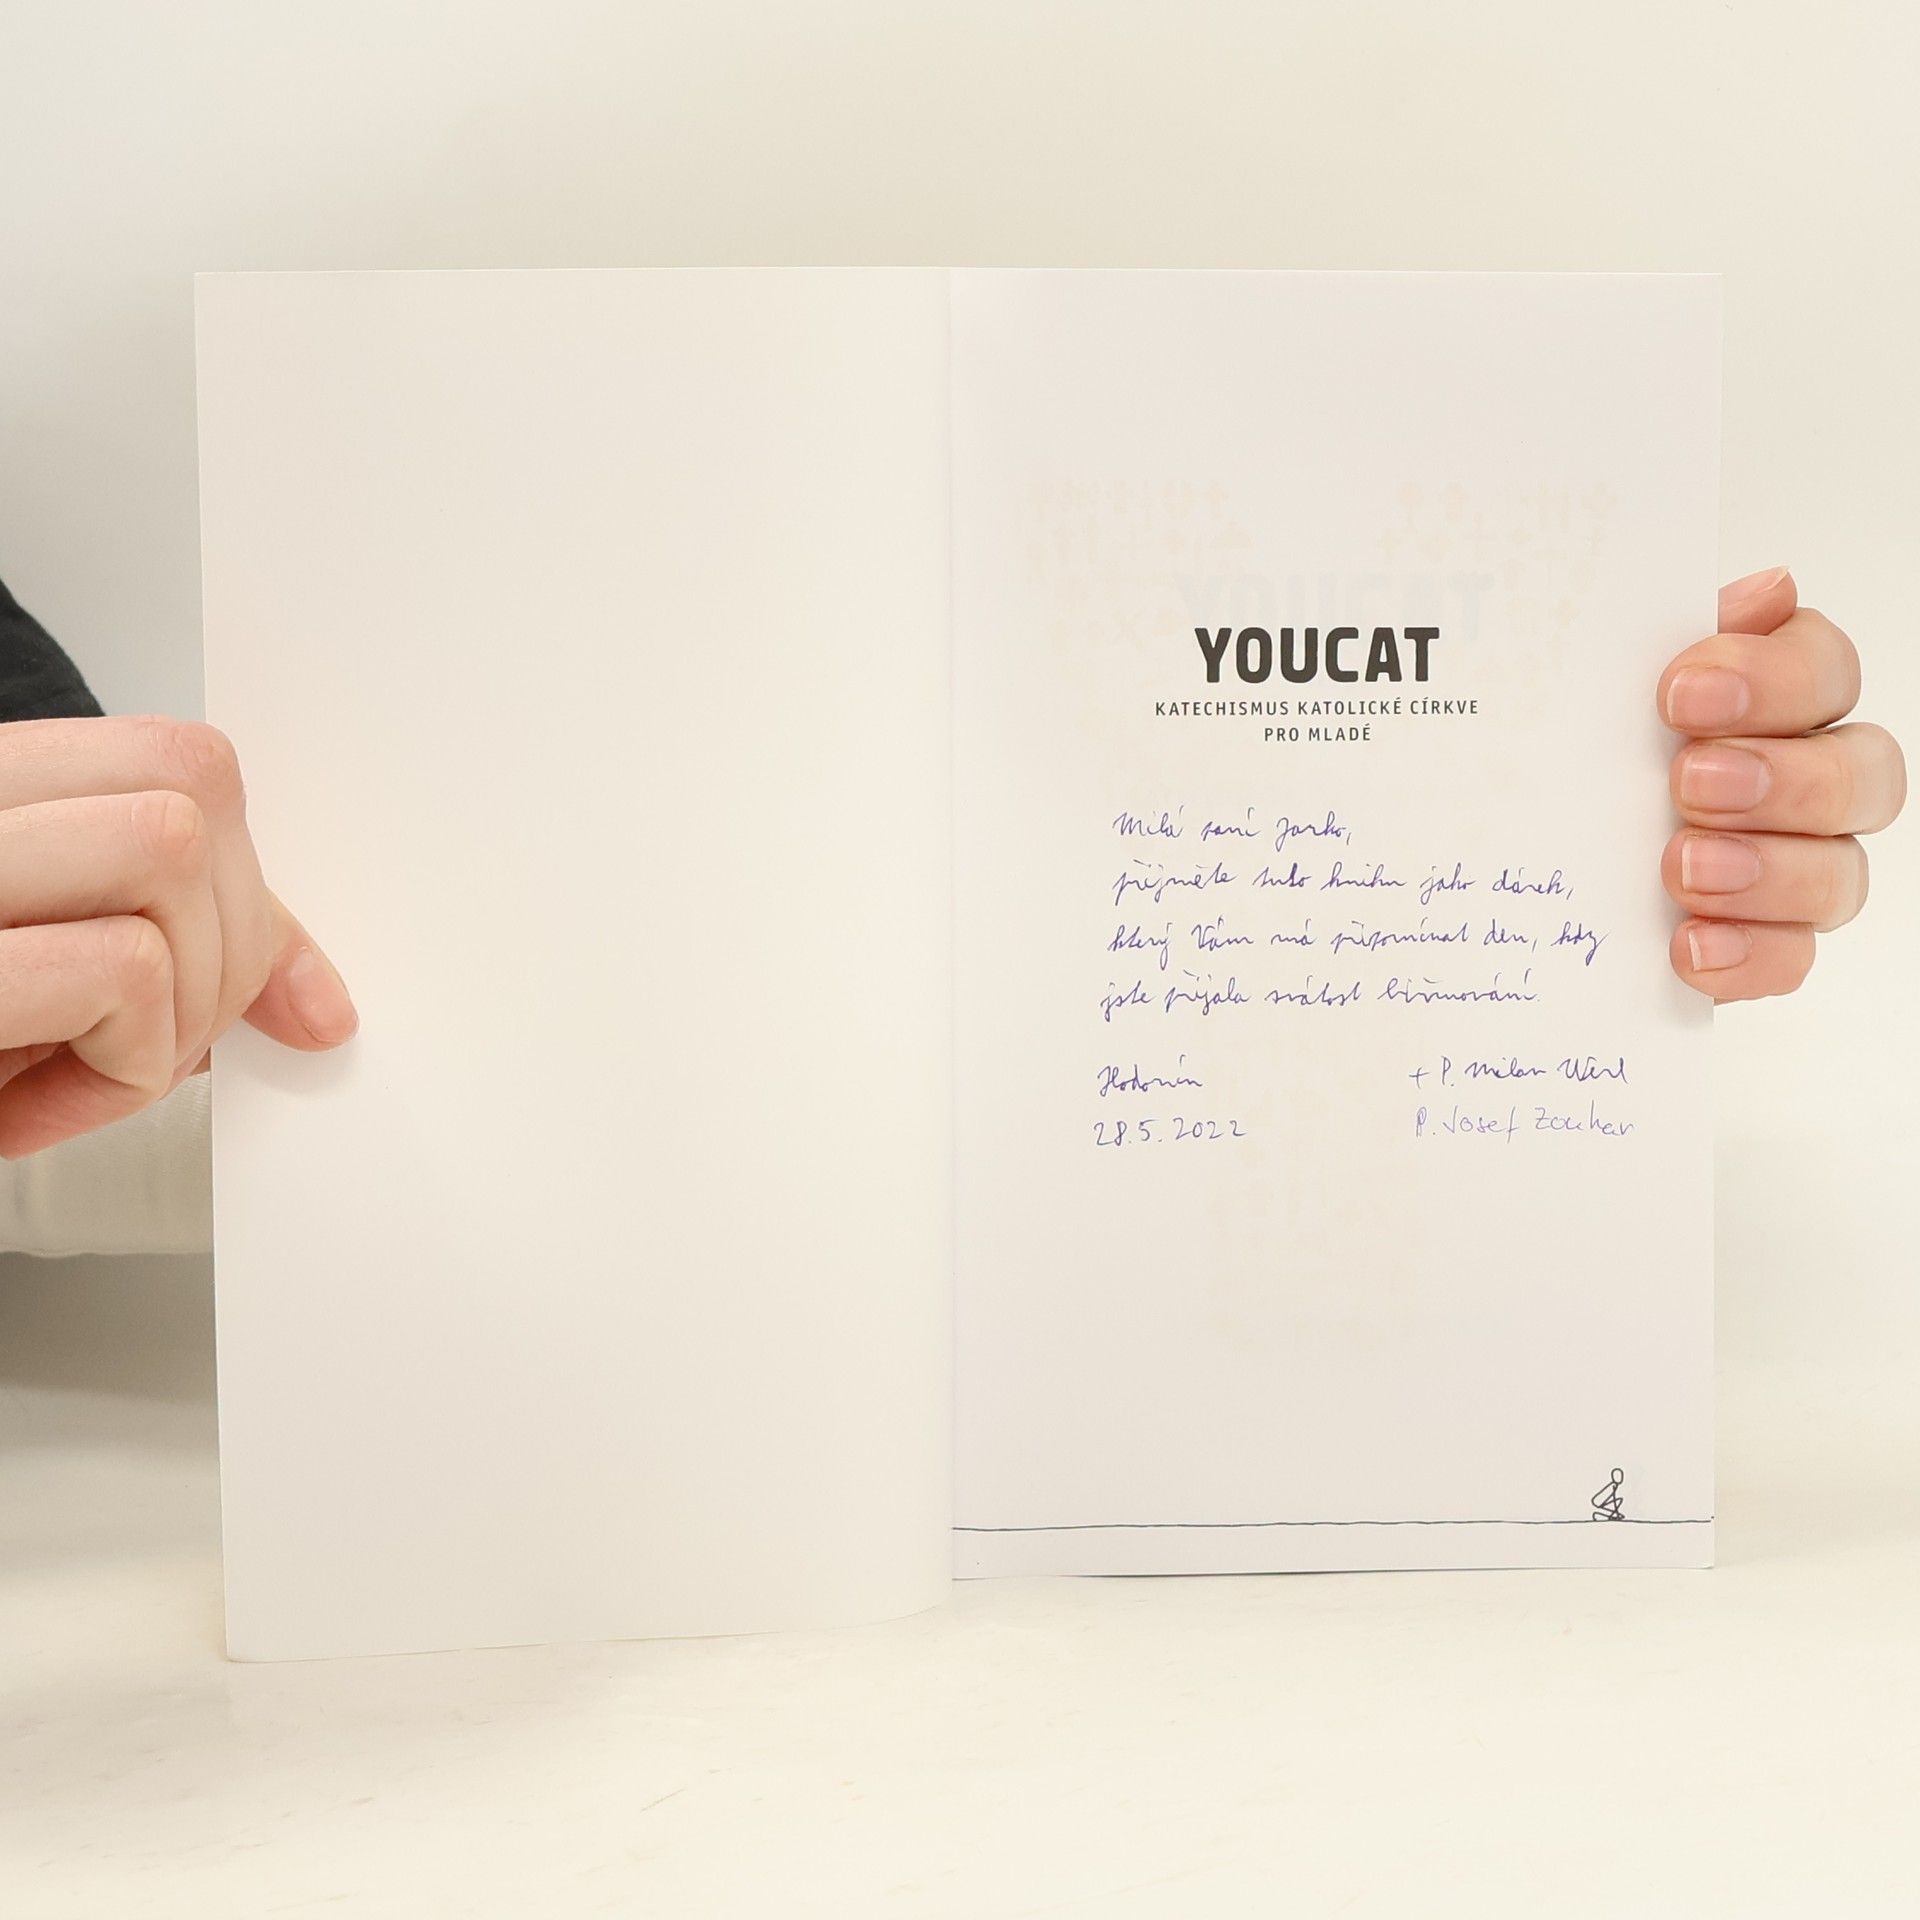 YOUCAT
KATECHISMUS KATOLICKÉ CÍRKVE
PRO MLADÉ
Milá paní Jarko,
přijměte tuto knihu jako dárek,
který Vám má připomínat den, kdy
jste přijala svátost biřmování.
Hodonín
+ P. Milan
28.5.2022
P. Josef Zouhar